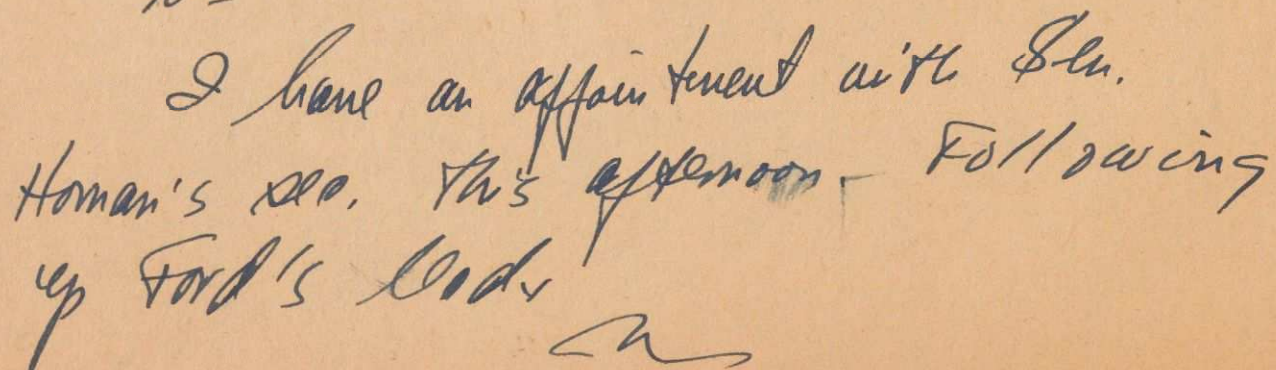 I have an appointment with Sen.
Homan's sec. this afternoon. Following
up Ford's